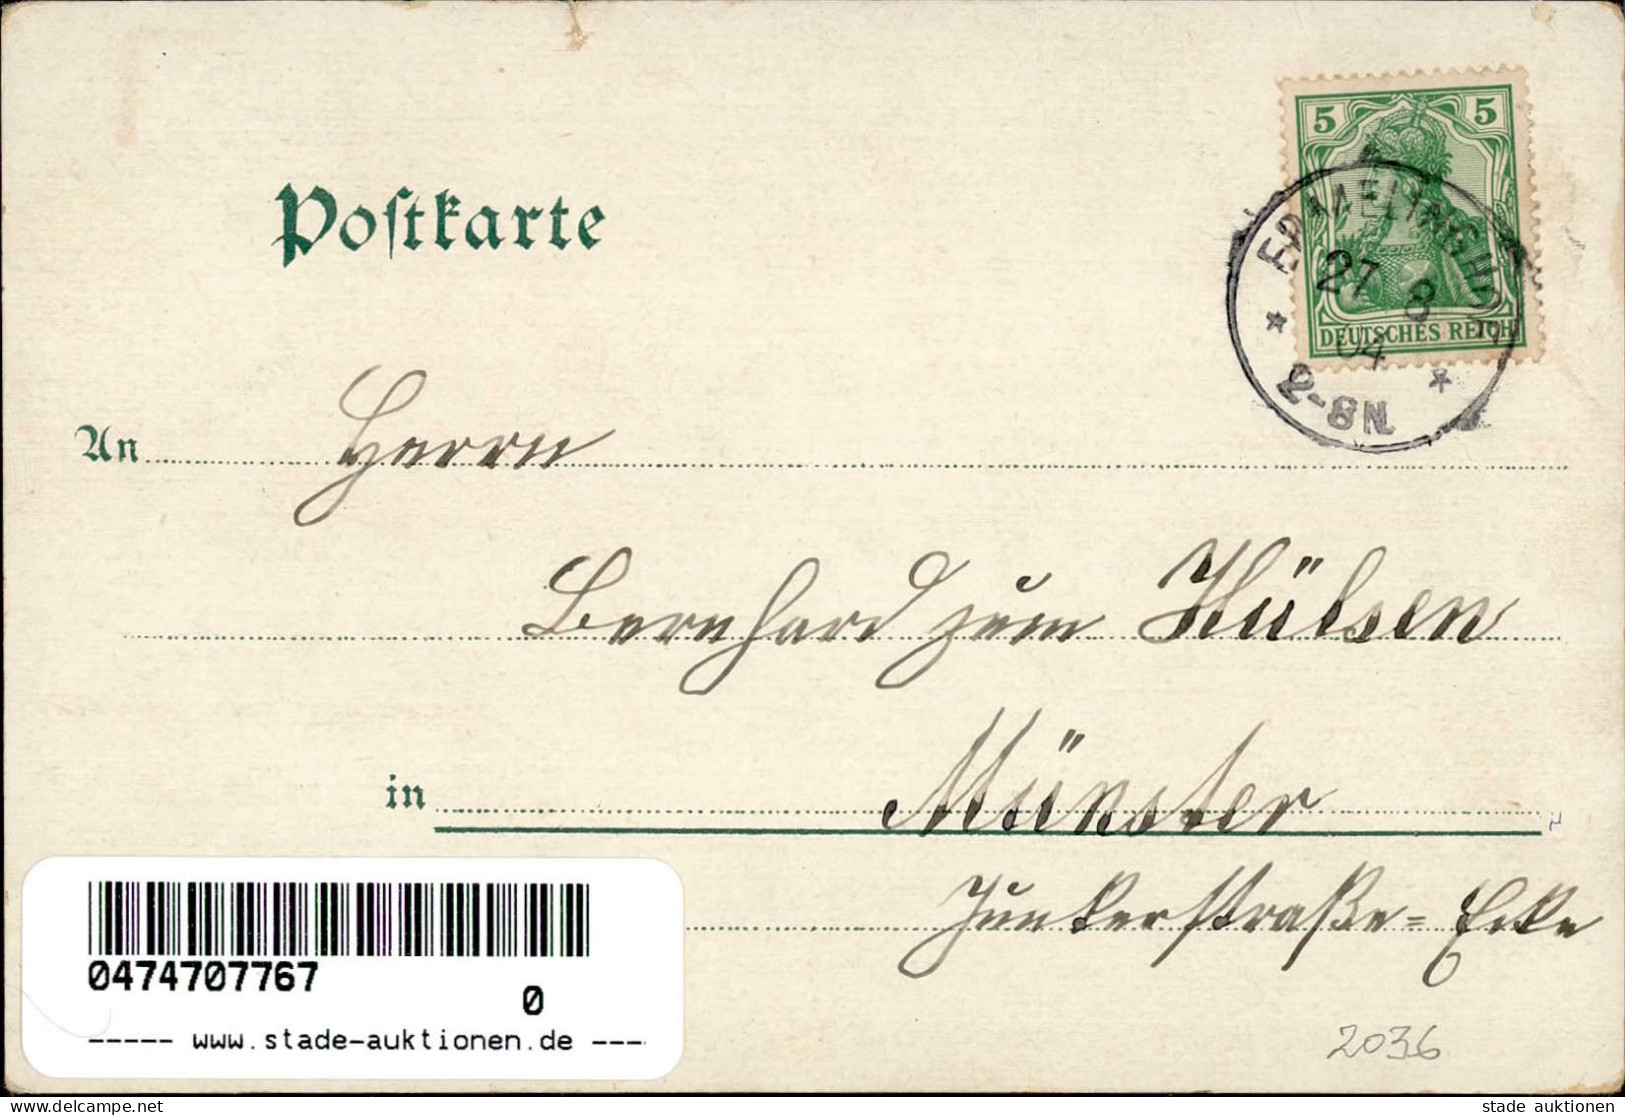 5 5
DEUTSCHES REICH
ERMELINGHOF
27 8
04
2-8N.
Postkarte
An Herrn
Bernhard zum Hülsen
in Münster
Junkerstraße=Ecke
0474707767
0
----- www.stade-auktionen.de ---
2036
stade auktionen